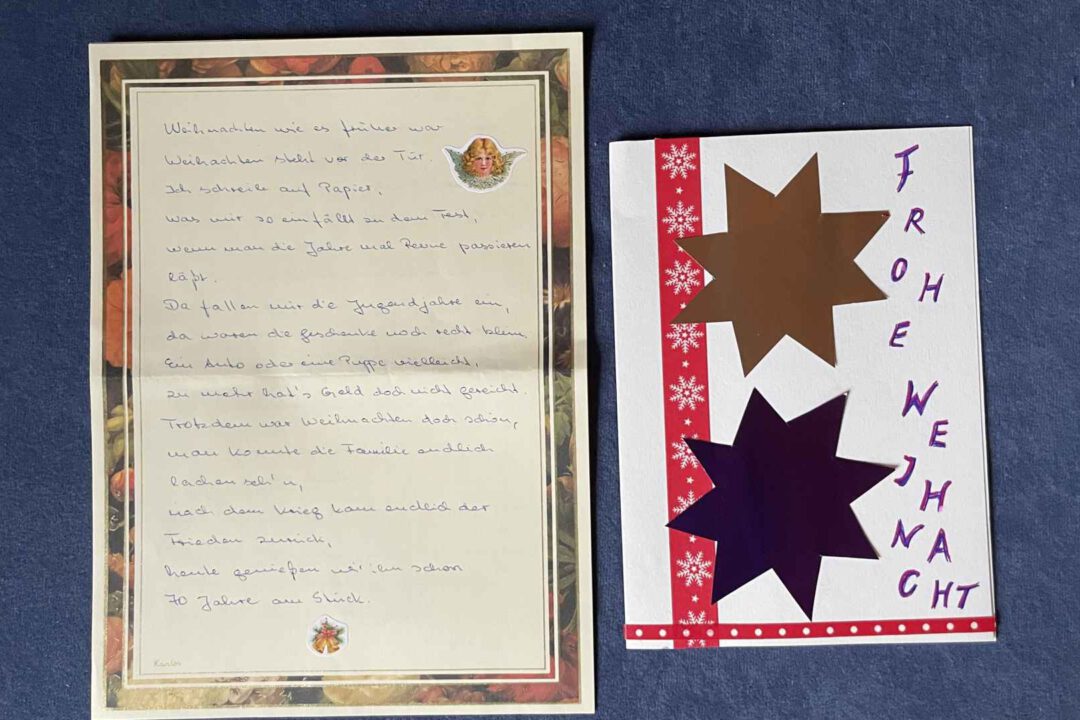 Weihnachten wie es früher war
Weihachten steht vor der Tür.
Ich schreibe auf Papier,
was mir so einfällt zu dem Fest,
wenn man die Jahre mal Revue passieren
läßt.
Da fallen mir die Jugendjahre ein,
da waren die Geschenke noch recht klein.
Ein Auto oder eine Puppe vielleicht,
zu mehr hat's Geld doch nicht gereicht.
Trotzdem war Weihnachten doch schön,
man konnte die Familie endlich
lachen seh'n,
nach dem Krieg kam endlich der
Frieden zurück,
heute genießen wir ihn schon
70 Jahre am Stück.
FROHE
WEJHNACHT